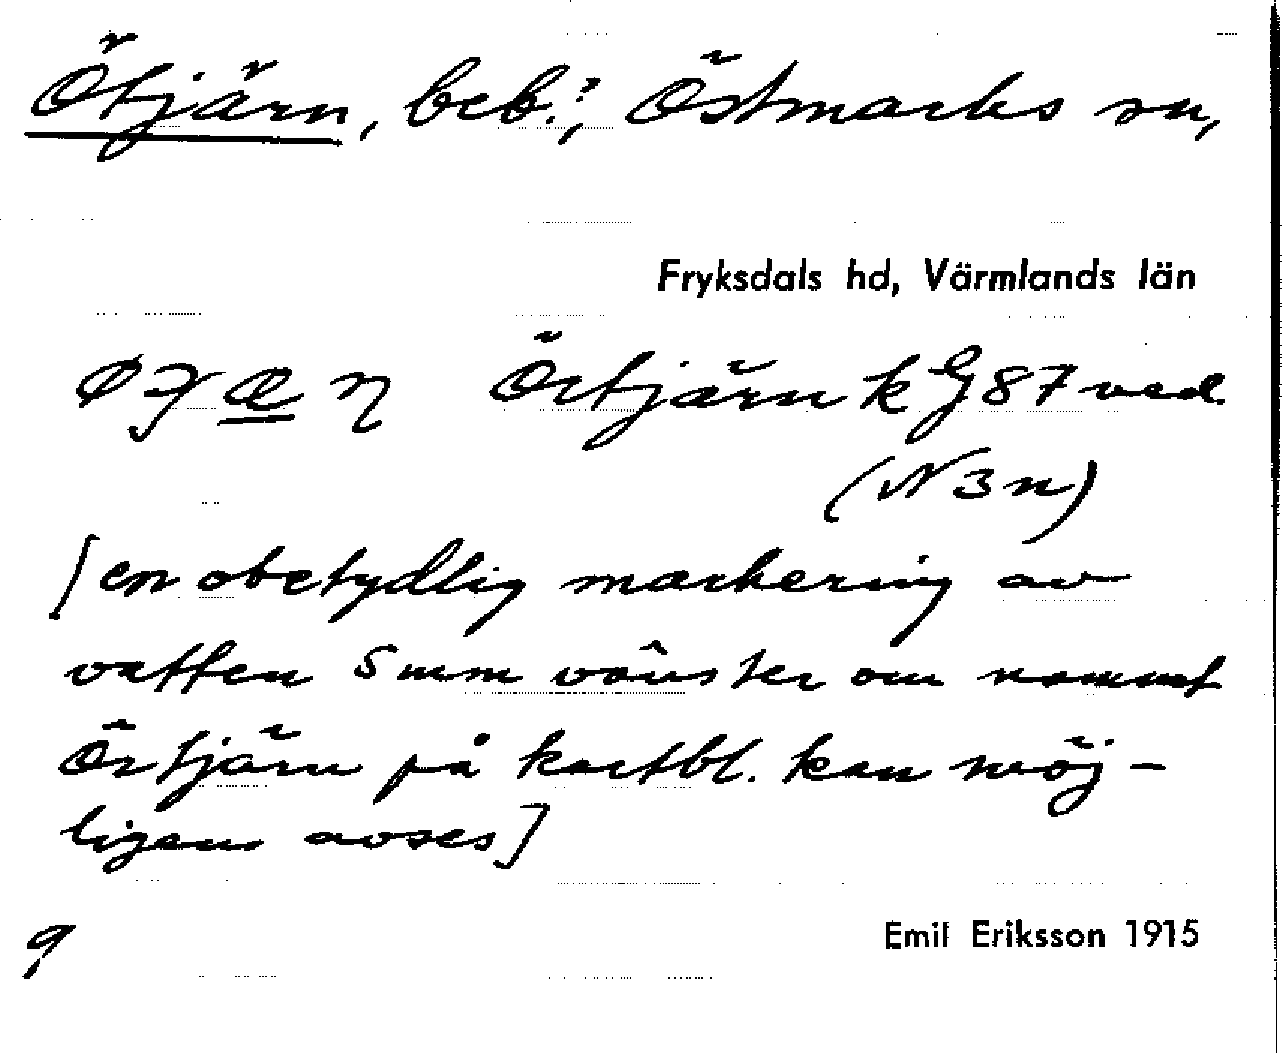 Ötjärn, beb.?, Östmarks sn,
Fryksdals hd, Värmlands län
Örtjärn k G 87 ved
(N 3 n)
[en obetydlig markering av
vatten 5 mm vänster om namnet
Örtjärn på kartbl. kan möj-
ligen avses]
9
Emil Eriksson 1915